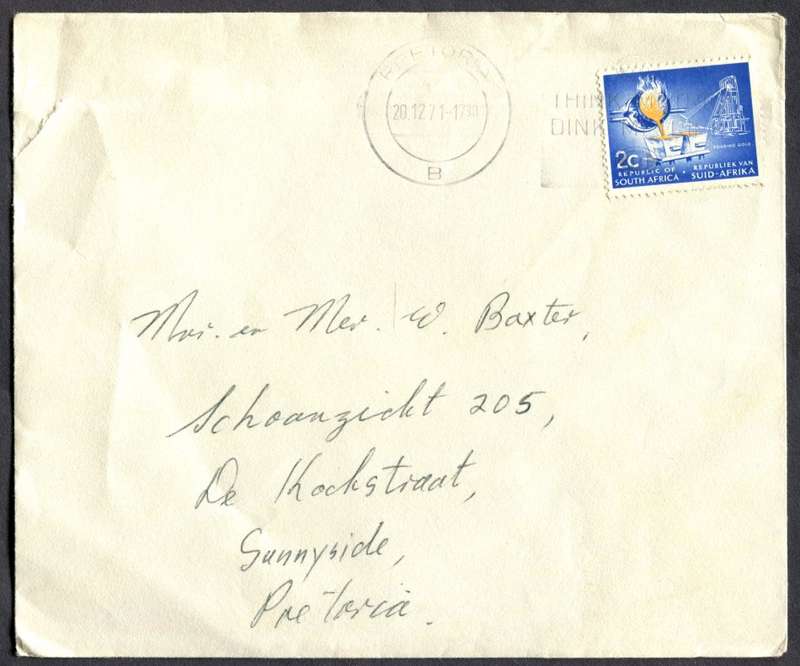 PRETORIA
20.12.71-1730
B
THINK
DINK
POURING GOLD
2c
REPUBLIC OF SOUTH AFRICA · REPUBLIEK VAN SUID-AFRIKA
Mnr. en Mev. W. Baxter,
Schoanzicht 205,
De Kockstraat,
Sunnyside,
Pretoria.